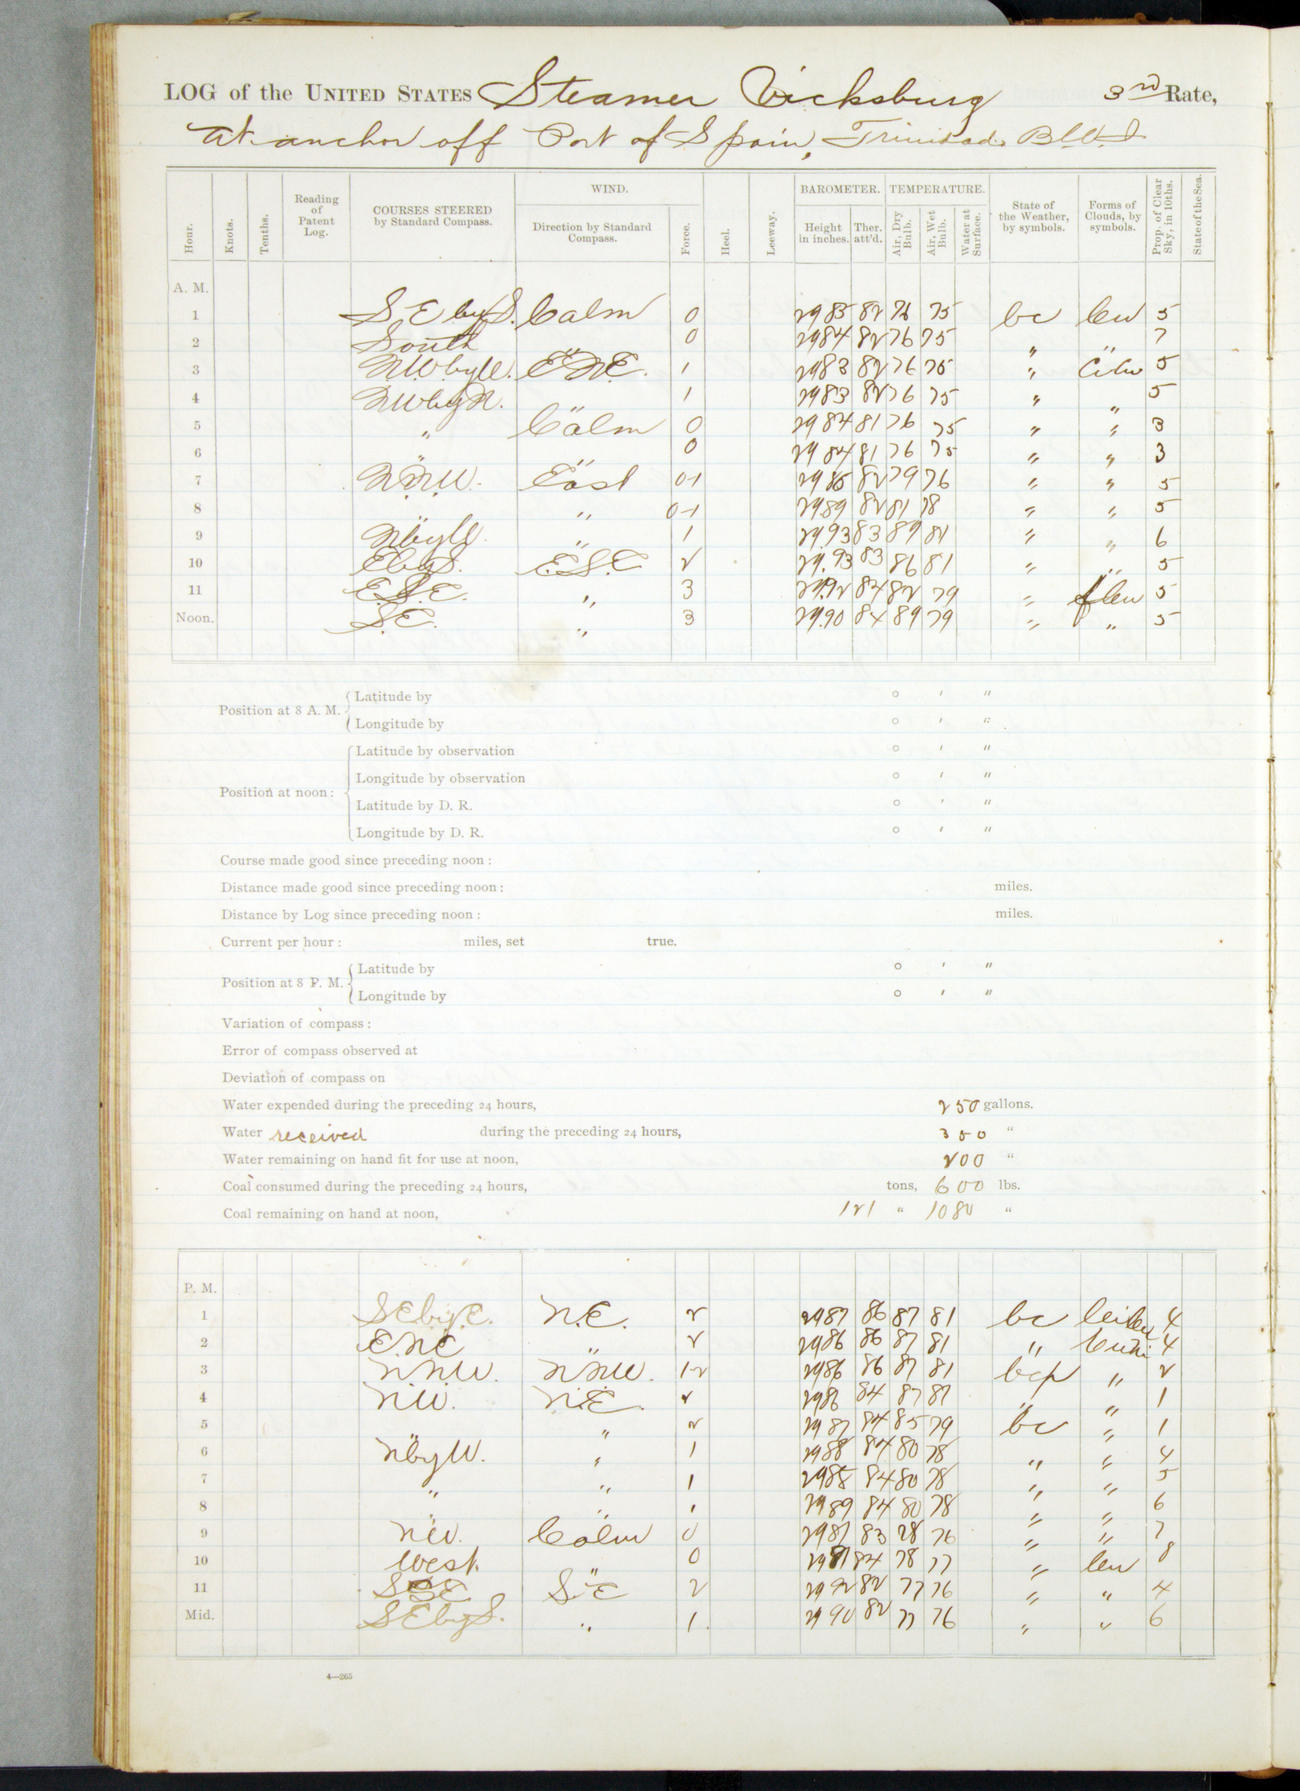 LOG of the UNITED STATES Steamer Vicksburg 3rd Rate,
At anchor off Port of Spain, Trinidad, B.W.I.
Hour. Knots. Tenths. Reading of Patent Log. COURSES STEERED by Standard Compass. WIND. Direction by Standard Compass. Force. Heel. Leeway. BAROMETER. Height in inches. Ther. att'd. TEMPERATURE. Air, Dry Bulb. Air, Wet Bulb. Water at Surface. State of the Weather, by symbols. Forms of Clouds, by symbols. Prop. of Clear Sky, in 10ths. State of the Sea.
A. M.
1 S.E by S. Calm 0 2985 82 76 75 bc cu 5
2 South " 0 2984 82 76 75 " " 7
3 NW by W. E.N.E. 1 2983 82 76 75 " Cicu 5
4 NW by N. " 1 2983 82 76 75 " " 5
5 " Calm 0 2984 81 76 75 " " 3
6 " " 0 2984 81 76 75 " " 3
7 N.N.W. East 0-1 2985 82 79 76 " " 5
8 " " 0-1 2989 82 81 78 " " 5
9 N by W. " 1 29.93 83 89 81 " " 6
10 E by S. E.S.E. 2 29.93 83 86 81 " " 5
11 E.S.E. " 3 29.92 84 82 79 " cu 5
Noon. S.E. " 3 29.90 84 89 79 " " 5
Position at 8 A. M. Latitude by ° ' "
Longitude by ° ' "
Position at noon: Latitude by observation ° ' "
Longitude by observation ° ' "
Latitude by D. R. ° ' "
Longitude by D. R. ° ' "
Course made good since preceding noon:
Distance made good since preceding noon: miles.
Distance by Log since preceding noon: miles.
Current per hour: miles, set true.
Position at 8 P. M. Latitude by ° ' "
Longitude by ° ' "
Variation of compass:
Error of compass observed at
Deviation of compass on
Water expended during the preceding 24 hours, 250 gallons.
Water received during the preceding 24 hours, 300 "
Water remaining on hand fit for use at noon, 200 "
Coal consumed during the preceding 24 hours, tons, 600 lbs.
Coal remaining on hand at noon, 121 " 1080 "
P. M.
1 SE by E. N.E. 2 2987 86 87 81 bc cicu 4
2 E.NE " 2 2986 86 87 81 " Cuni 4
3 NNW. NNW. 1-2 2986 86 87 81 bcp " 2
4 N.W. N.E. 2 2986 84 87 81 " " 1
5 " " 2 2987 84 85 79 bc " 1
6 N by W. " 1 2988 84 80 78 " " 4
7 " " 1 2988 84 80 78 " " 5
8 " " 1 2989 84 80 78 " " 6
9 NW. Calm 0 2987 83 78 76 " " 7
10 West. " 0 2991 84 78 77 " cu 8
11 SSE S.E 2 2992 82 77 76 " " 4
Mid. SE by S. " 1. 2990 82 77 76 " " 6
4—265